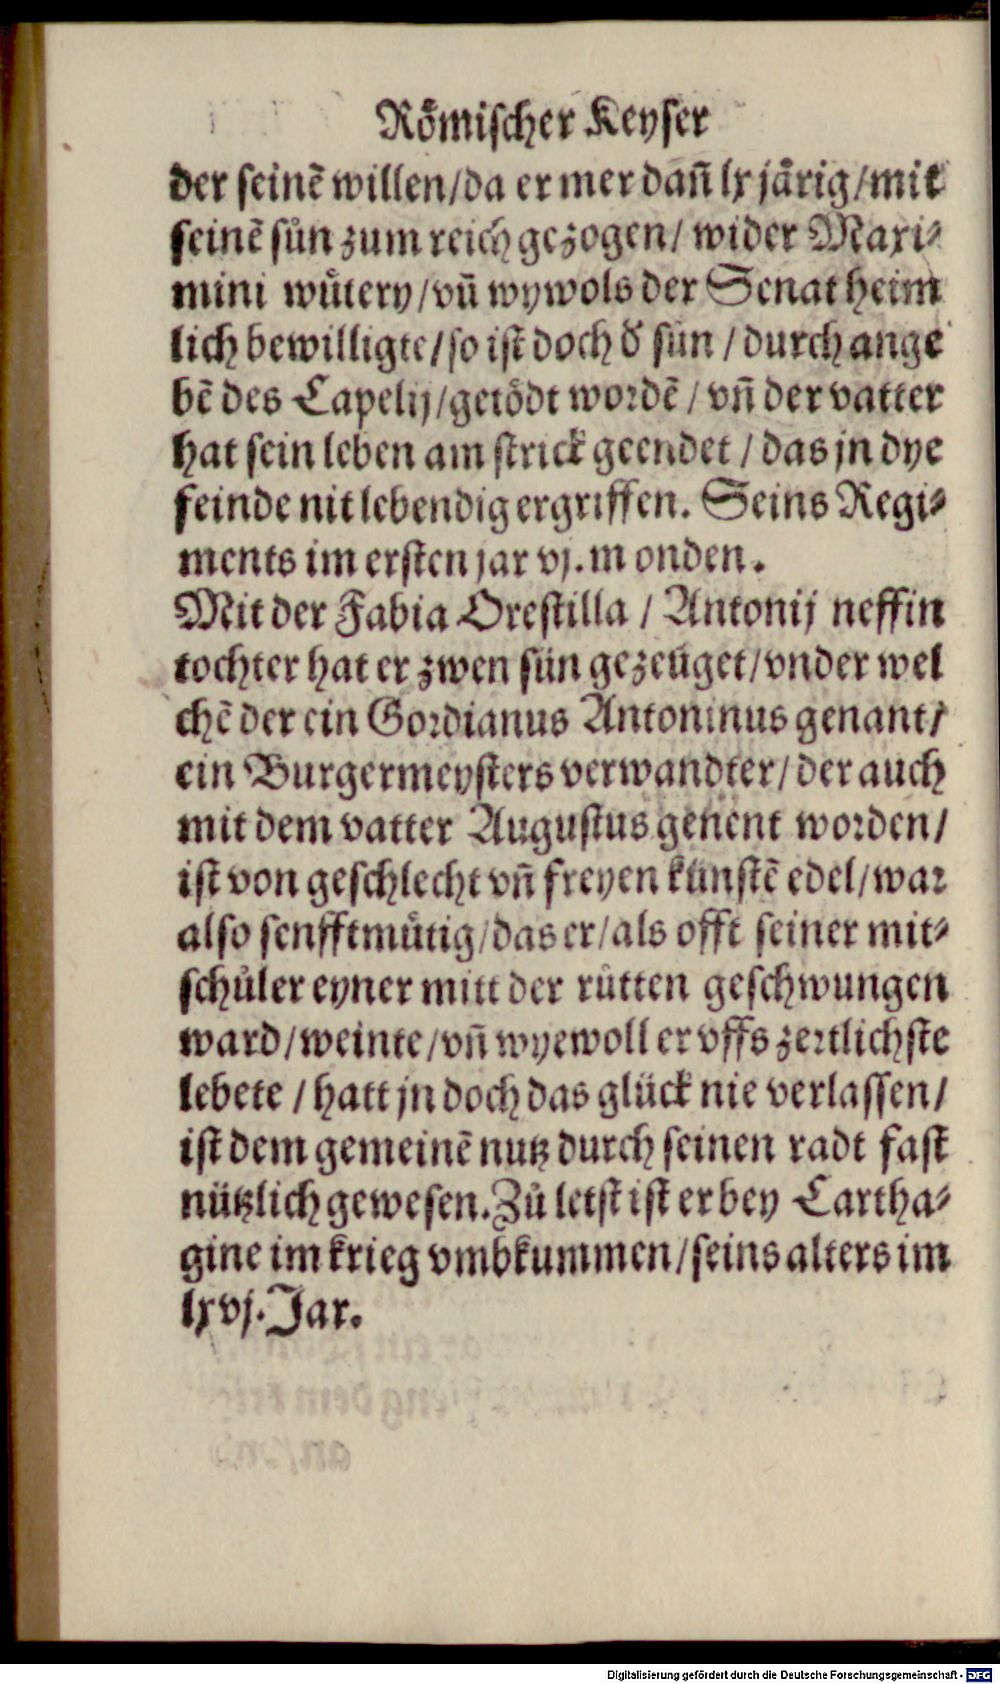 Roͤmischer Keyser
der seinē willen/da er mer dañ lx jaͤrig/mit
seinē suͤn zum reich gezogen/ wider Maxi⸗
mini wuͤtery/vñ wywols der Senat heim
lich bewilligte/so ist doch d' sun /durch ange
bē des Capelij/getoͤdt wordē/ vñ der vatter
hat sein leben am strick geendet / das jn dye
feinde nit lebendig ergriffen. Seins Regi⸗
ments im ersten jar vj. monden.
Mit der Fabia Orestilla / Antonij neffin
tochter hat er zwen sün gezeüget/vnder wel
chē der ein Gordianus Antoninus genant/
ein Burgermeysters verwandter/der auch
mit dem vatter Augustus genent worden/
ist von geschlecht vñ freyen künstē edel/war
also senfftmuͤtig/das er/als offt seiner mit⸗
schuͤler eyner mitt der ruͤtten geschwungen
ward/weinte/vñ wyewoll er vffs zertlichste
lebete /hatt jn doch das glück nie verlassen/
ist dem gemeinē nutz durch seinen radt fast
nützlich gewesen. Zů letst ist er bey Cartha⸗
gine im krieg vmbkummen/seins alters im
lxvj. Jar.
Digitalisierung gefördert durch die Deutsche Forschungsgemeinschaft - DFG